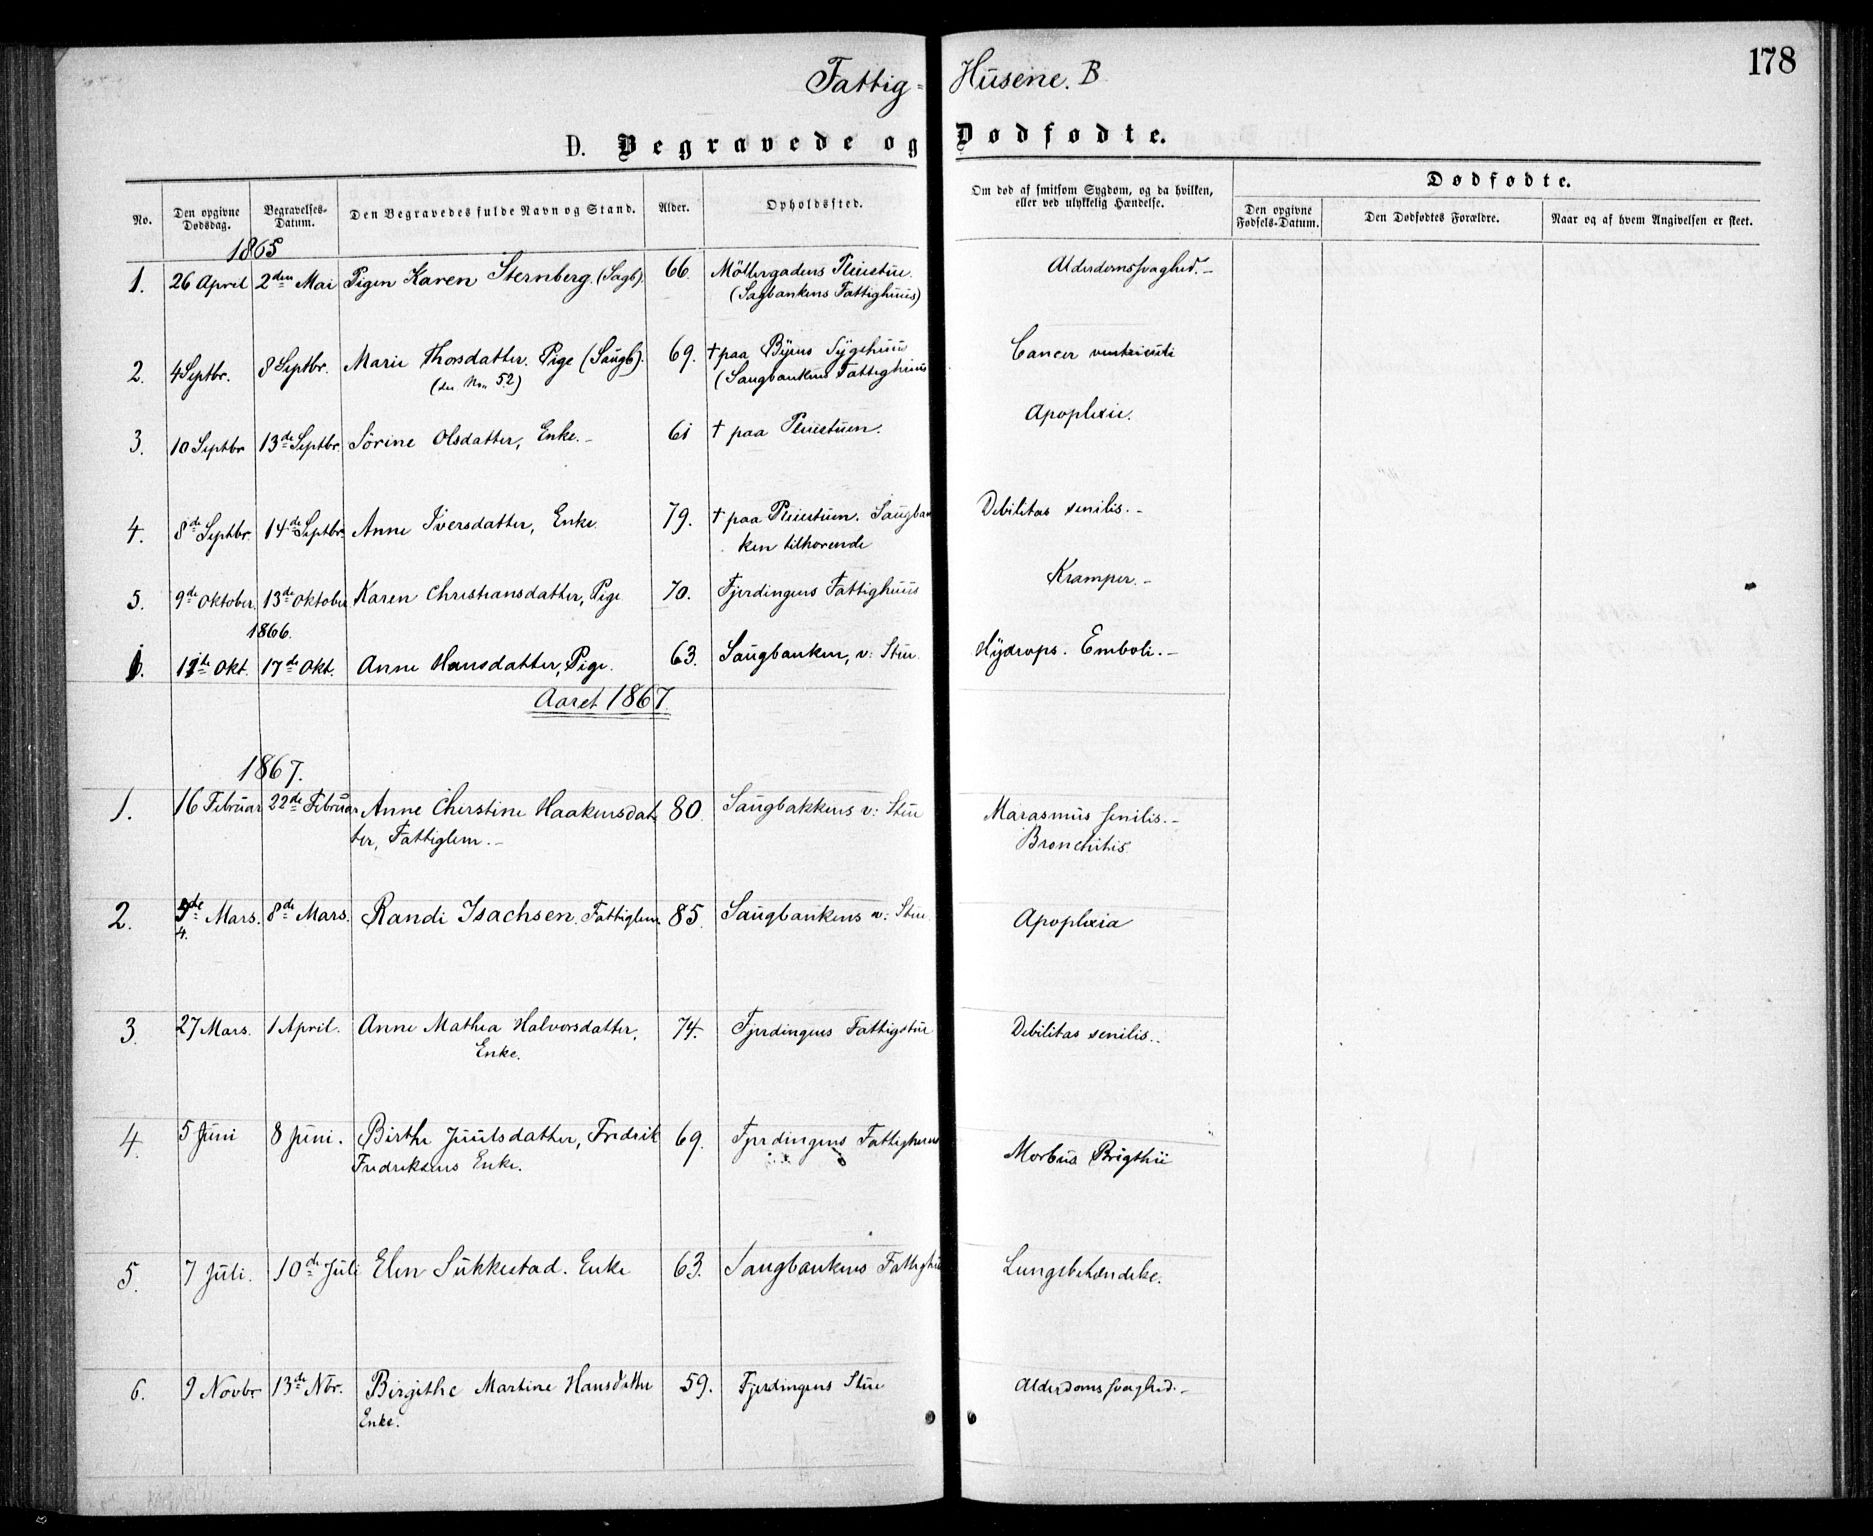 178
Fattig- Husene. B
D. Begravede og Dødfødte.
No.
Den opgivne Dødsdag.
Begravelses-Datum.
Den Begravedes fulde Navn og Stand.
Alder.
Opholdssted.
Om død af smitsom Sygdom, og da hvilken, eller ved ulykkelig Hændelse.
Dødfødte.
Den opgivne Fødsels-Datum.
Den Dødfødtes Forældre.
Naar og af hvem Angivelsen er skeet.
1865
1. 26 April 2den Mai Pigen Karen Sternberg. (Sagb). 66. Möllergadens Pleiestue. Alderdomssvaghed. –
(Sagbankens Fattighuus)
2. 4 Septbr. 8 Septbr. Marie Thorsdatter. Pige (Saugb). 69. † paa Byens Sygehuus Cancer ventriculi
(see No. 52) (Saugbankens Fattighuus
3. 10 Septbr 13de Septbr. Sörine Olsdatter, Enke. – 61 † paa Pleiestuen. Apoplexie.
4. 8de Septbr. 14de Septbr. Anne Iversdatter, Enke. 79. † paa Pleiestuen. Saugban Debilitas senilis. –
ken tilhørende
5. 9de Oktober. 13de Oktober Karen Christiansdatter, Pige 70. Fjerdingens Fattighuus Kramper. –
1866.
1. 11te Okt. 17de Okt. Anne Hansdatter, Pige. 63. Saugbanken, v: Stue. Hydrops. Emboli. –
Aaret 1867.
1867.
1. 16 Februar 22de Februar Anne Christine Haakensdat 80. Saugbakkens v: Stue Marasmus senilis. –
ter, Fattiglem. – Bronchitis.
2. 5de Mars. 8de Mars. Randi Isachsen. Fattiglem. 85. Saugbankens v: Stue. Apoplexia
4.
3. 27 Mars. 1 April. Anne Mathea Halvorsdatter, 74. Fjerdingens Fattigstue Debilitas senilis.
Enke.
4. 5 Juni 8 Juni. Birthe Juulsdatter, Fredrik 69. Fjerdingens Fattighuus Morbus Brigthii
Fredriksens Enke.
5. 7 Juli. 10de Juli Elen Sukkestad. Enke 63. Saugbankens Fattighu Lungebetændelse.
6. 9 Novbr 13de Nbr. Birgithe Martine Hansdatter 59. Fjerdingens Stue Alderdomssvaghed. –
Enke.